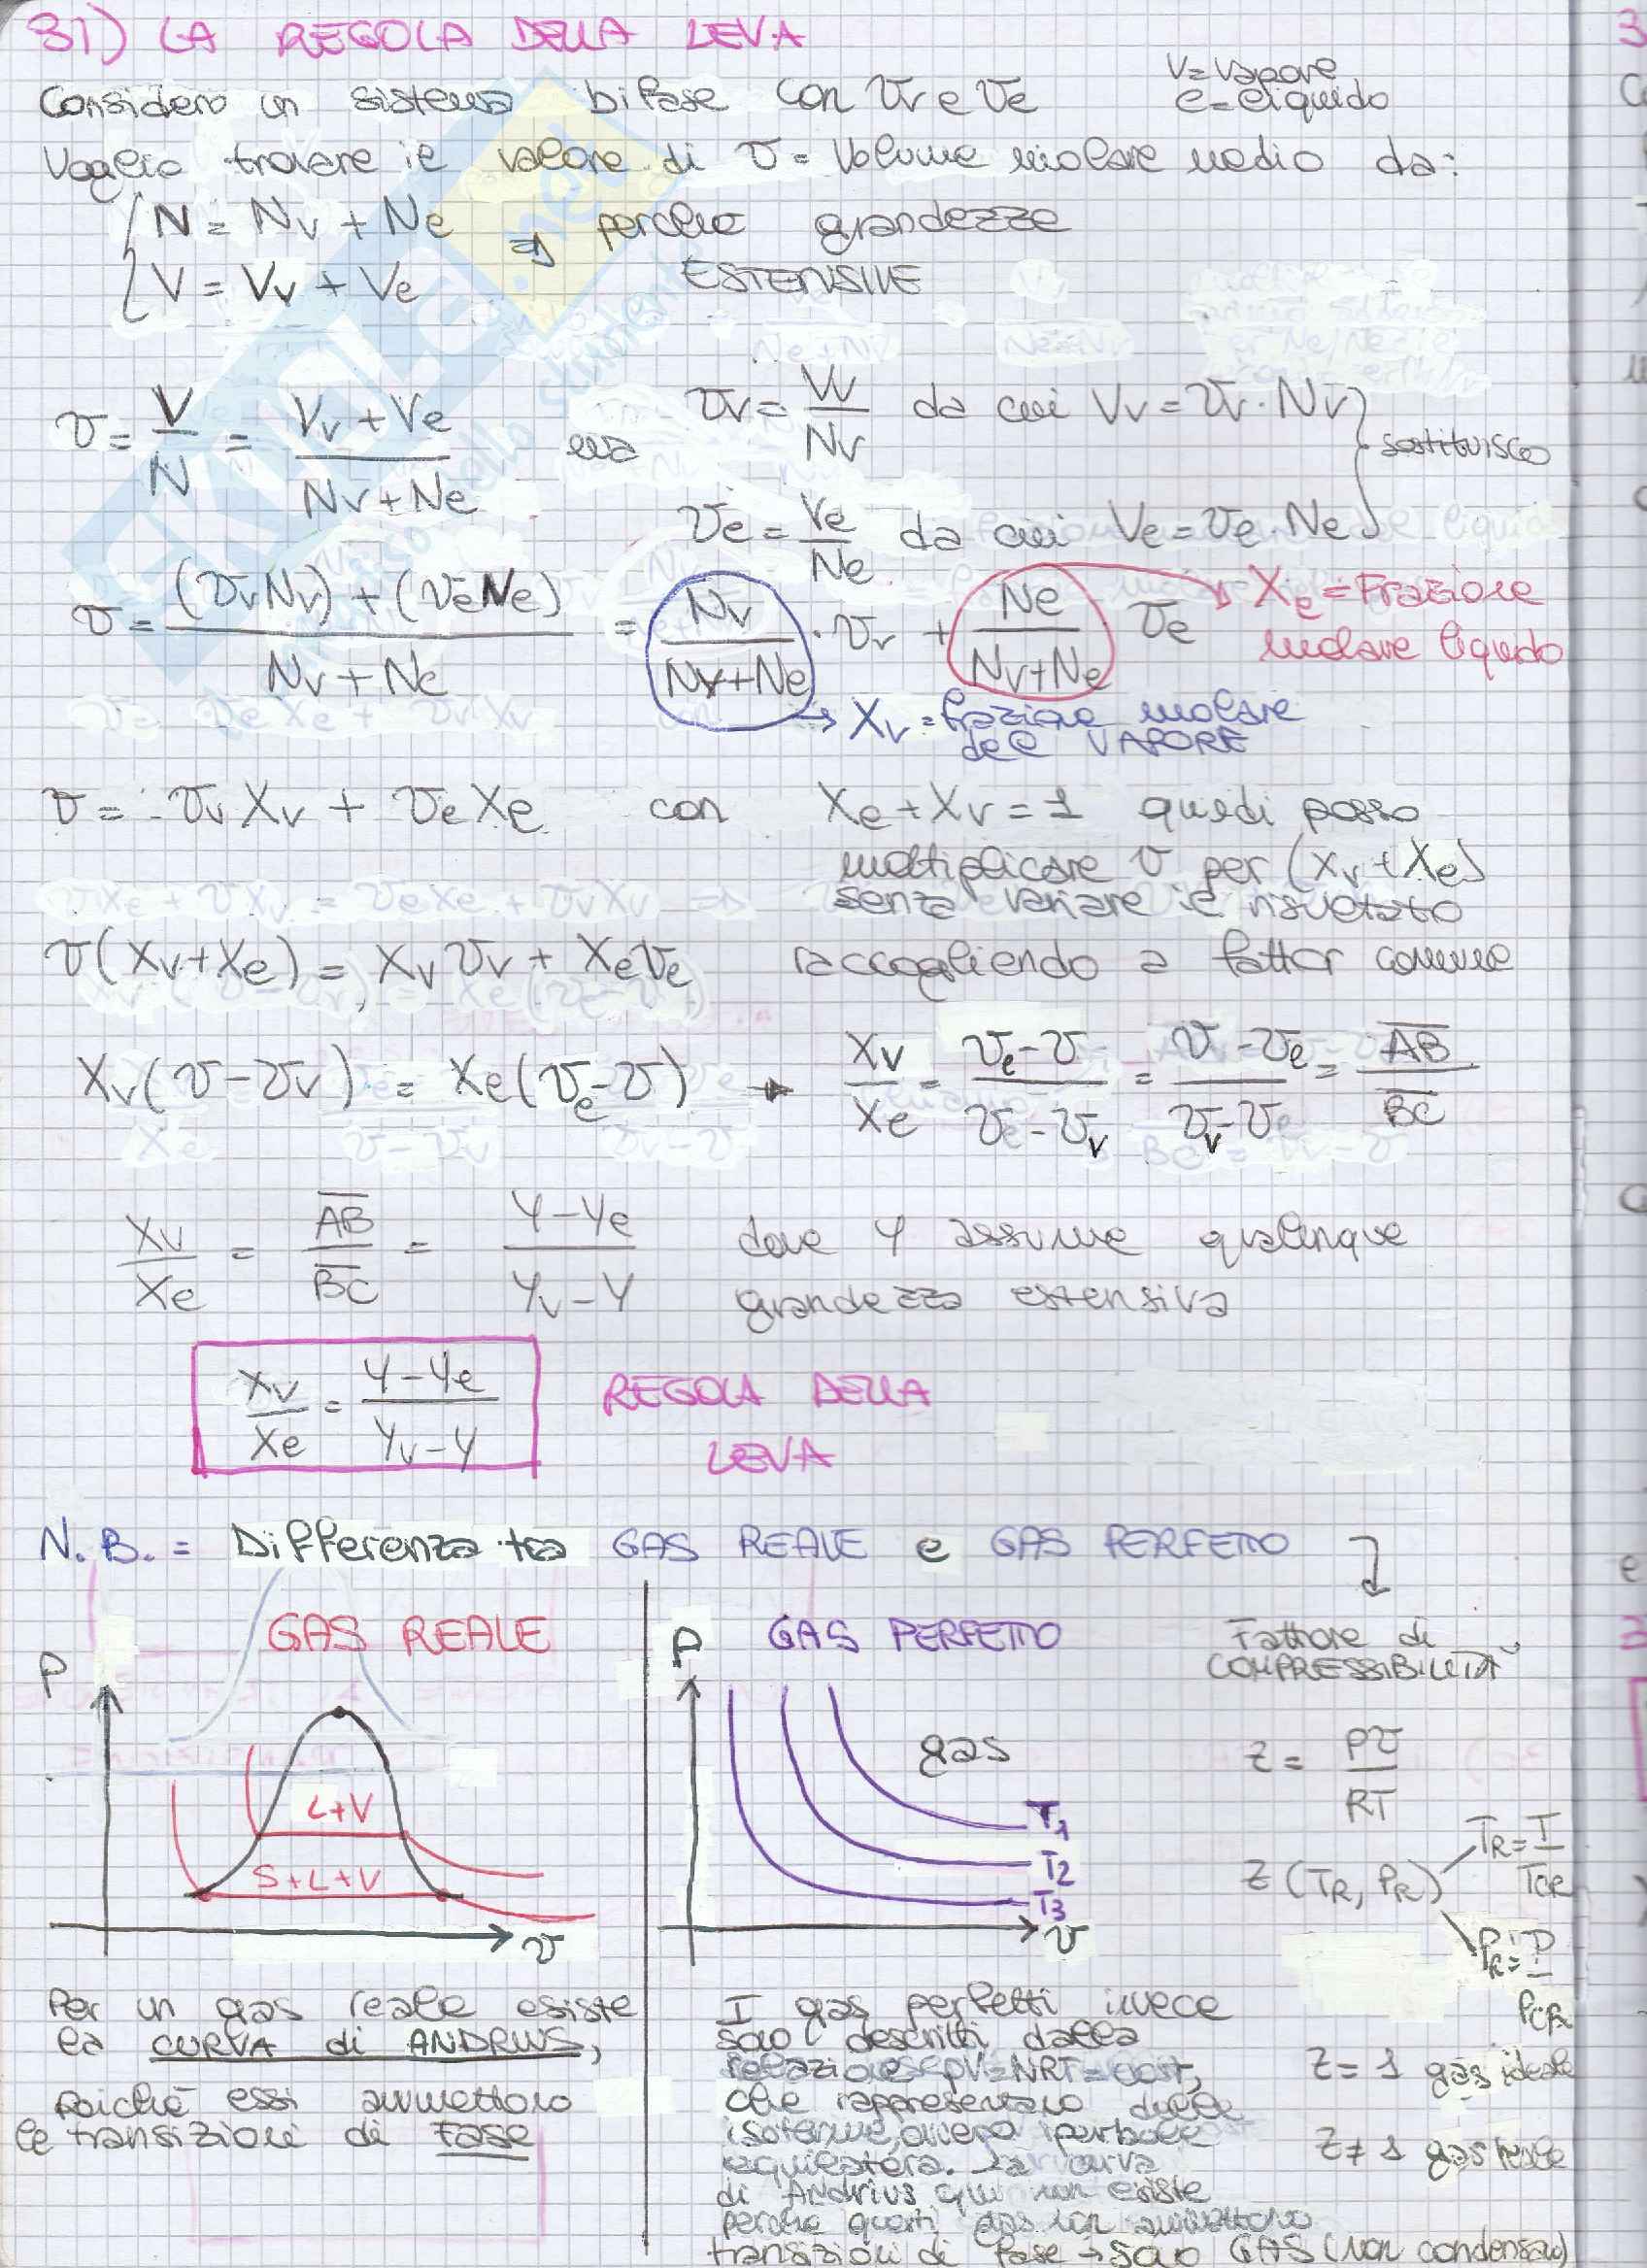 31) LA REGOLA DELLA LEVA
Considero un sistema bifase con vv e vl
v = vapore
l = liquido
Voglio trovare il valore di v = Volume molare medio da:
N = Nv + Nl ⇒ perché grandezze
V = Vv + Vl ESTENSIVE
v = V/N = (Vv + Vl)/(Nv + Nl) ma vv = Vv/Nv da cui Vv = vv · Nv
sostituisco
vl = Vl/Nl da cui Vl = vl · Nl
v = ((vvNv) + (vlNl))/(Nv + Nl) = Nv/(Nv+Nl) · vv + Nl/(Nv+Nl) vl
→ Xl = Frazione
molare liquido
→ Xv = frazione molare
del VAPORE
v = vvXv + vlXl con Xl + Xv = 1 quindi posso
moltiplicare v per (Xv + Xl)
senza variare il risultato
v(Xv+Xl) = Xvvv + Xlvl raccogliendo a fattor comune
Xv(v - vv) = Xl(vl - v) → Xv/Xl = (vl - v)/(vl - vv) = (v - vl)/(vv - vl) = AB/BC
Xv/Xl = AB/BC = (Y - Yl)/(Yv - Y) dove Y assume qualinque
grandezza estensiva
Xv/Xl = (Y - Yl)/(Yv - Y) REGOLA DELLA
LEVA
N.B. = Differenza tra GAS REALE e GAS PERFETTO
GAS REALE
P
L+V
S+L+V
v
GAS PERFETTO
P
gas
T1
T2
T3
v
Fattore di
COMPRESSIBILITÀ
z = Pv/RT
z (TR, PR)
TR = T/TCR
PR = P/PCR
z = 1 gas ideale
z ≠ 1 gas reale
Per un gas reale esiste
la CURVA di ANDRIUS,
poiché essi ammettono
le transizioni di FASE
I gas perfetti invece
sono descritti dalla
relazione pV=NRT=cost,
che rappresentano delle
isoterme, ovvero iperbole
equilatera. La curva
di Andrius qui non esiste
perché questi gas non ammettono
transizioni di fase → sono GAS (non condensano)
EKNLA.net